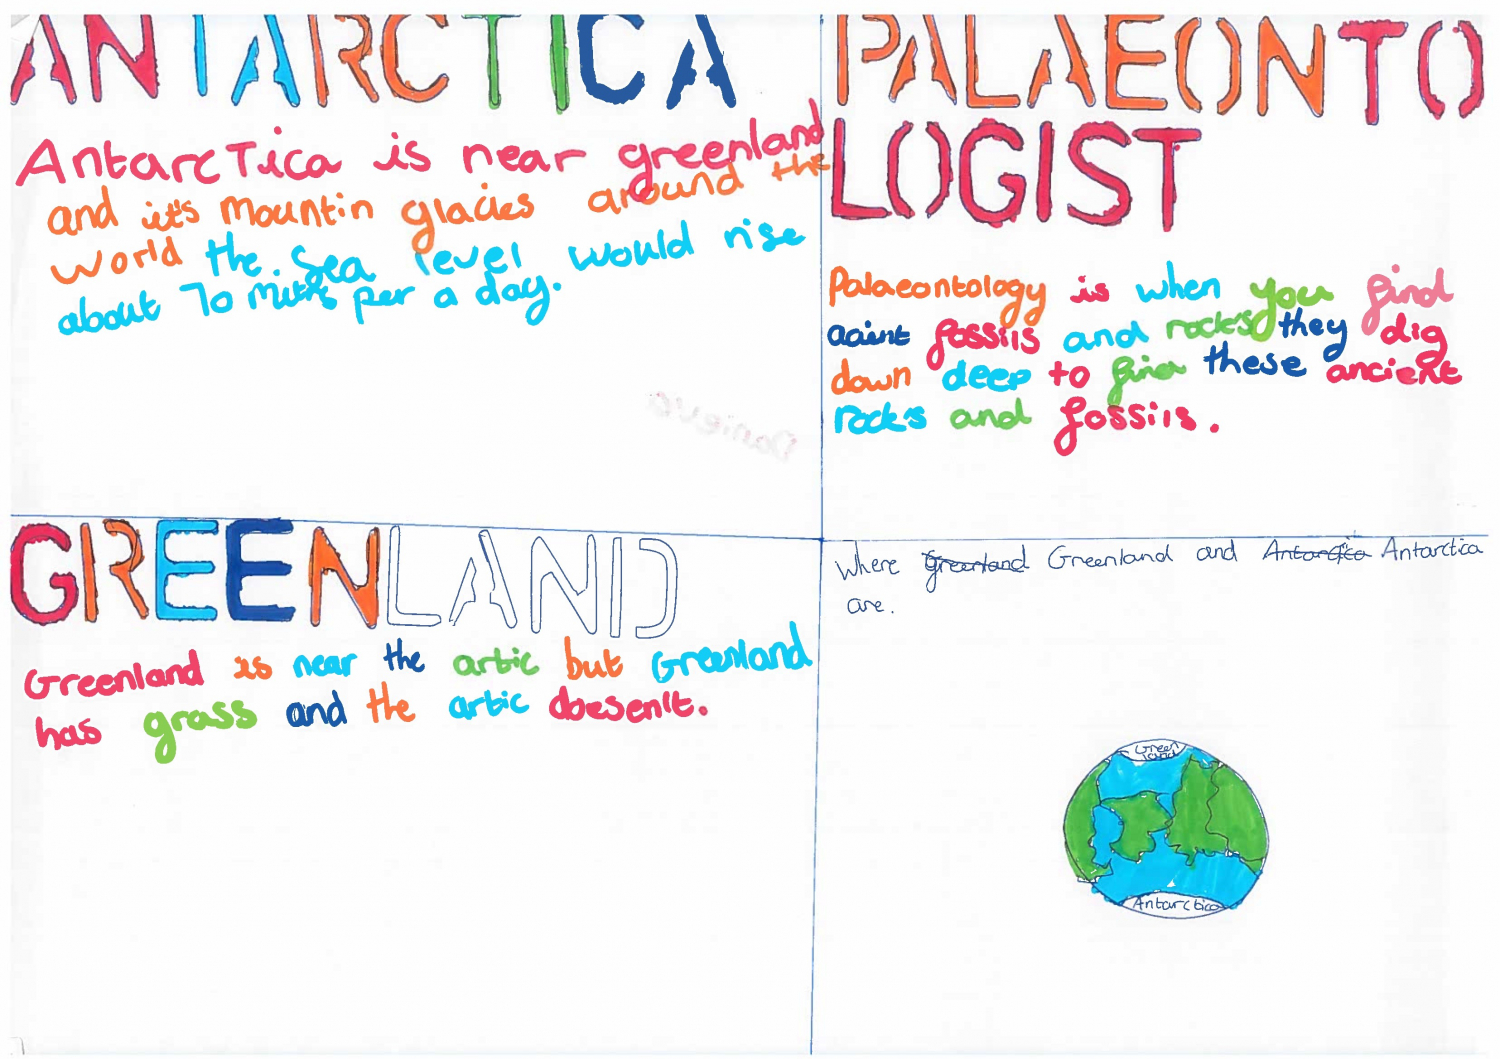 ANTARCTICA
AntarcTica is near greenland
and it's mountin glacies around the
world the. Sea level would rise
about 70 per a day.
PALAEONTO
LOGIST
Palaeontology is when you find
fossils and rocks they dig
down deep to these ancient
rocks and fossils.
Danieva
GREENLAND
Greenland is near the artic but Greenland
has grass and the artic doesen't.
where Greenland Greenland and Antarctica Antarctica
are.
Green
land
Antarctica